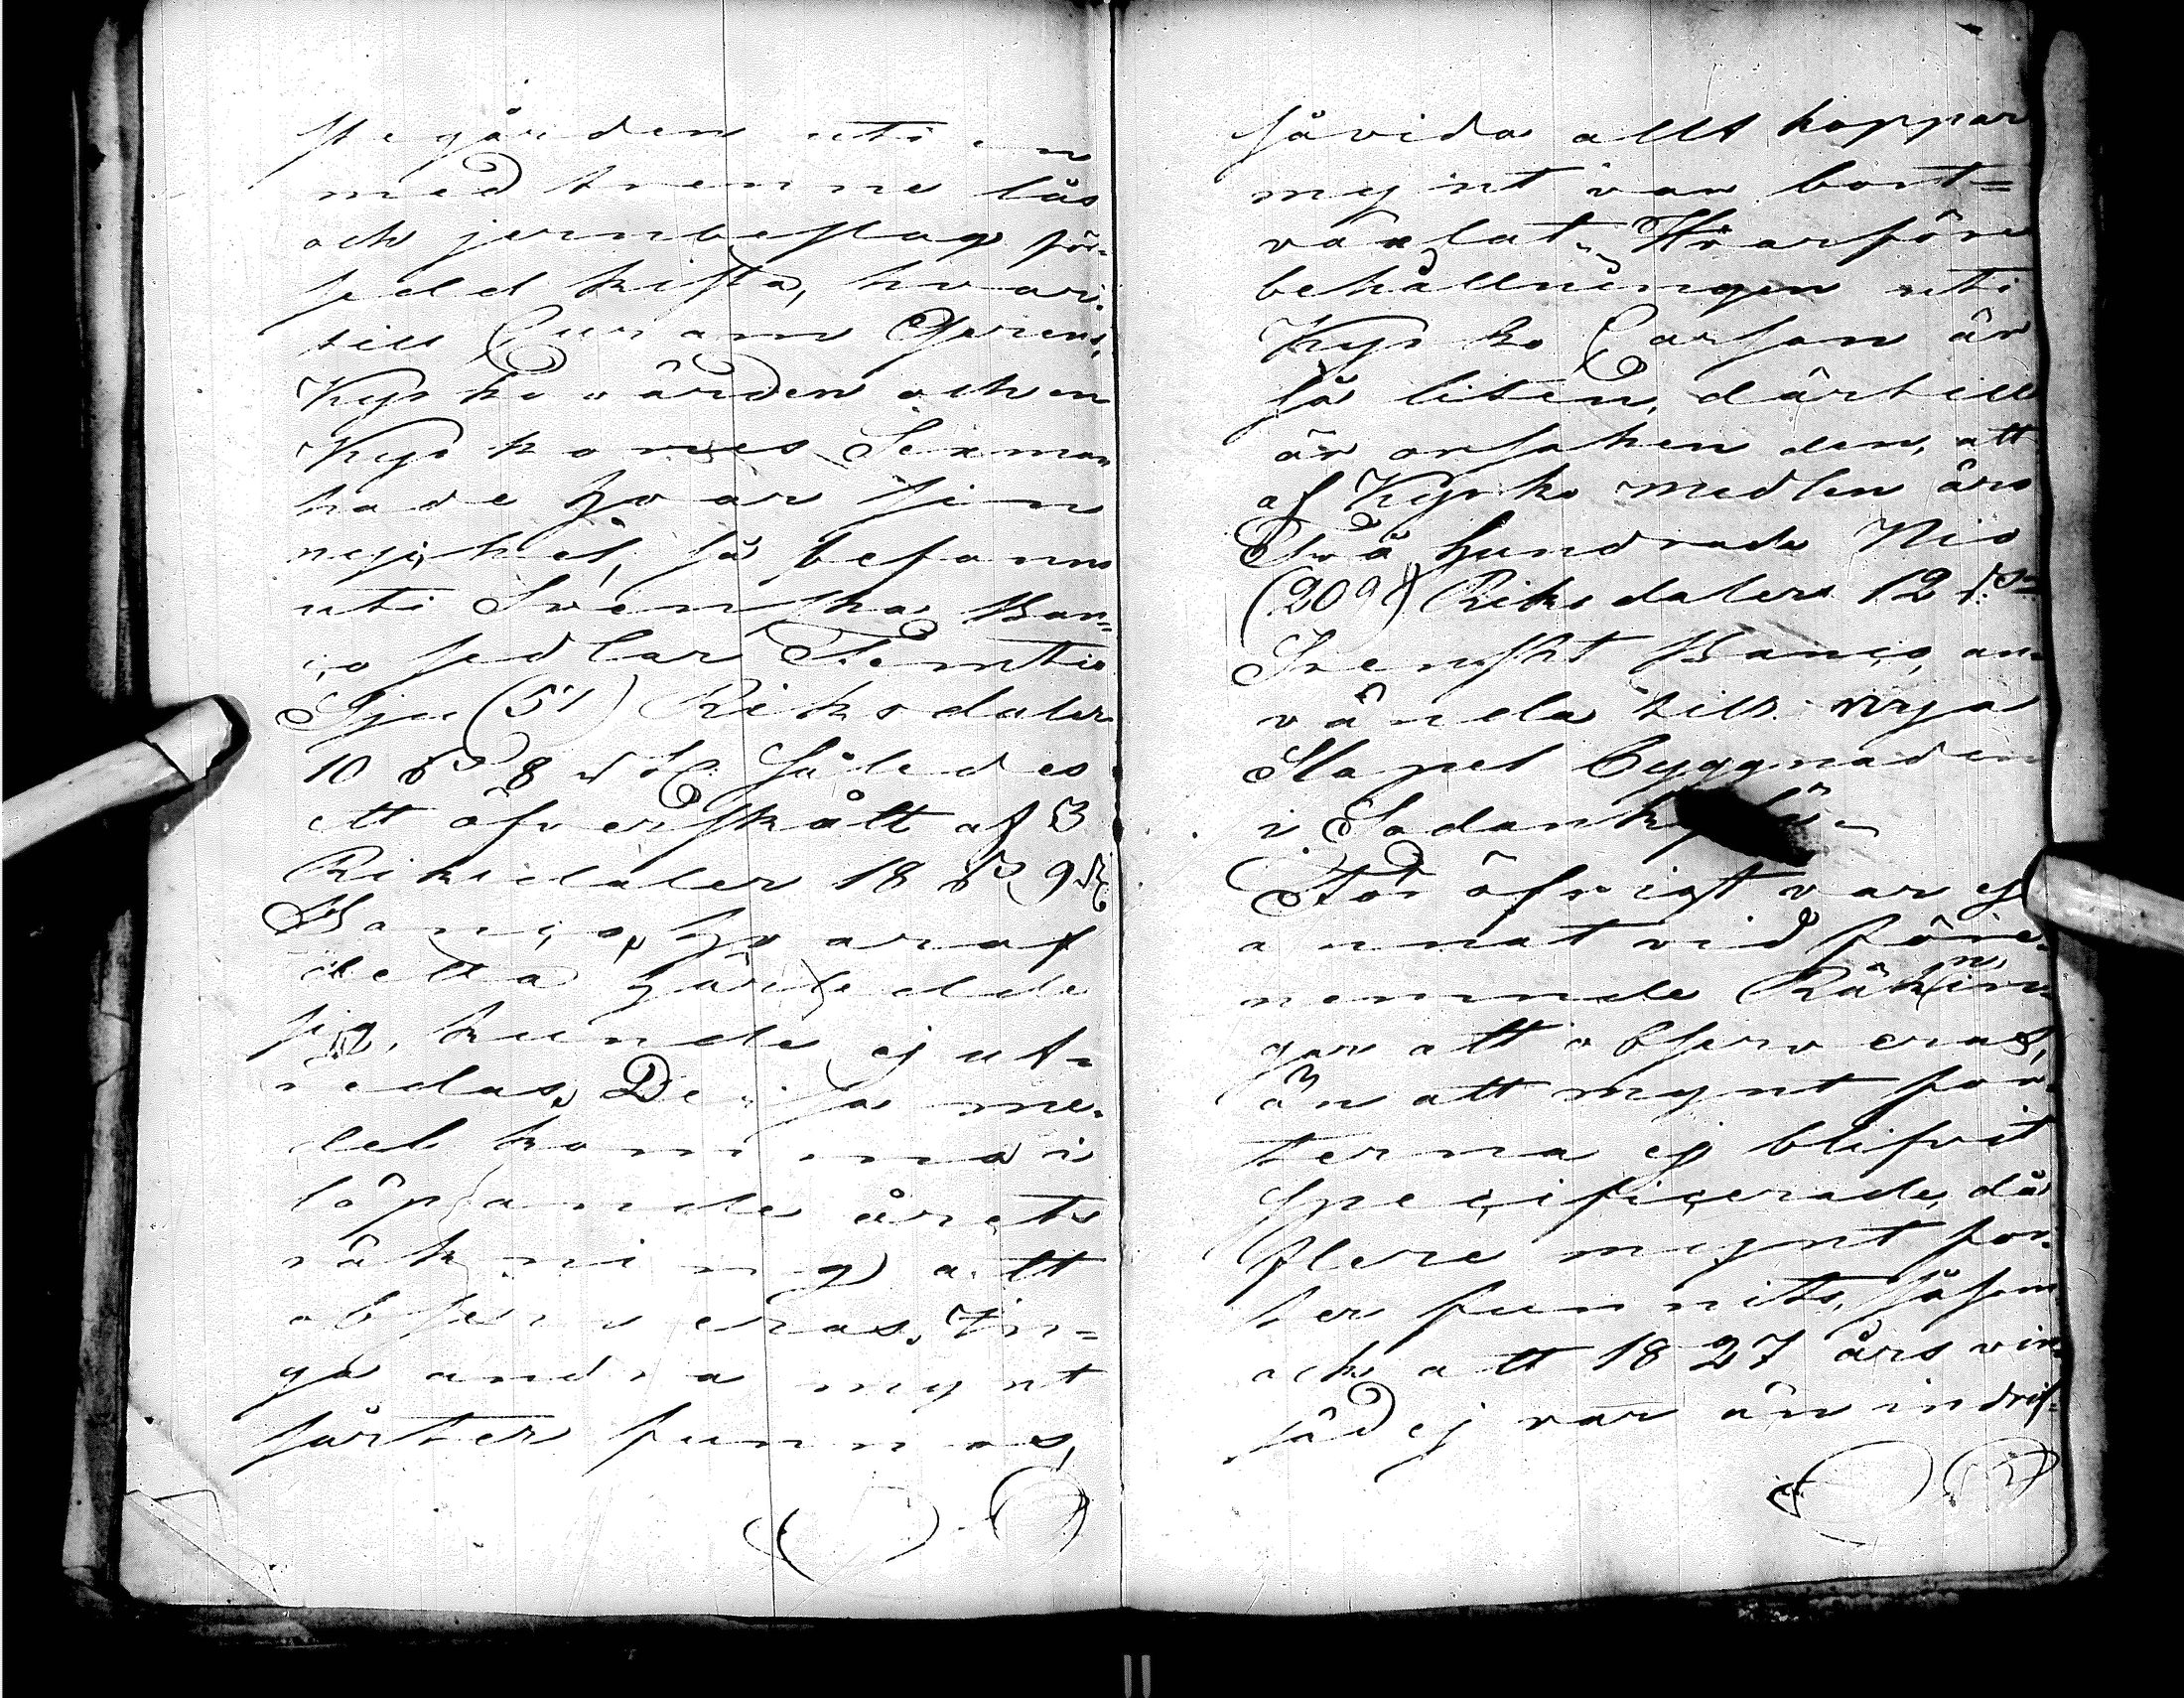 stegården uti en
med trenne lås
och jernbeslag för-
sedd kista, hvar-
till Curam Gerens,
Kyrkovärden och en
Kyrkones Sexman
hade hvar sin
nyckel, så befanns
uti Svenska Ban-
co sedlar Femtio
Sju (57) Riksdaler
10 s 8 rst således
ett öfverskått af 3
Riksdaler 18 s 9 rst
Banco, hvaraf
detta härledde
sig, kunde ej ut-
redas. Dessa me-
del komma i
löpande årets
räkning att
observeras. In-
ga andra mynt
sårter funnos,
såvida allt koppar
mynt var bort-
växlat. Hvarföre
behållningen uti
Kyrko Cassan är
så liten, därtill
är orsaken den, att
af Kyrko medlen äro
Två hundrade Nio
(209) Riksdaler 12 s
Svenskt Banco, an-
vända till nya
Stapel byggnaden
i Sodankylä.
För öfrigt var ej
annat vid före-
nemnde Räknin-
gar att observeras,
än att mynt sor-
terna ej blifvit
specificerade, då
flere mynt sor-
ter funnits, såsom
ock att 1827 års vin-
säd ej var än indrif-